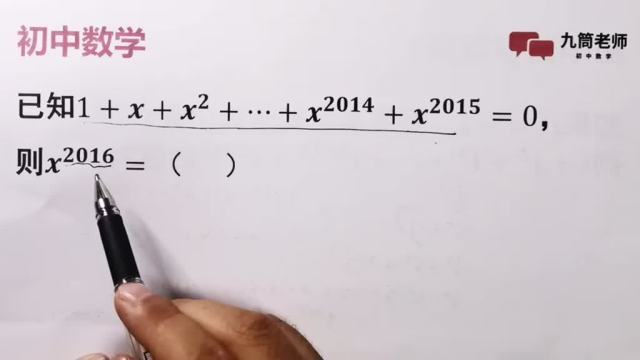 初中数学
九筒老师
初中数学
已知1 + x + x² + ⋯ + x²⁰¹⁴ + x²⁰¹⁵ = 0，
则x²⁰¹⁶ = （ ）